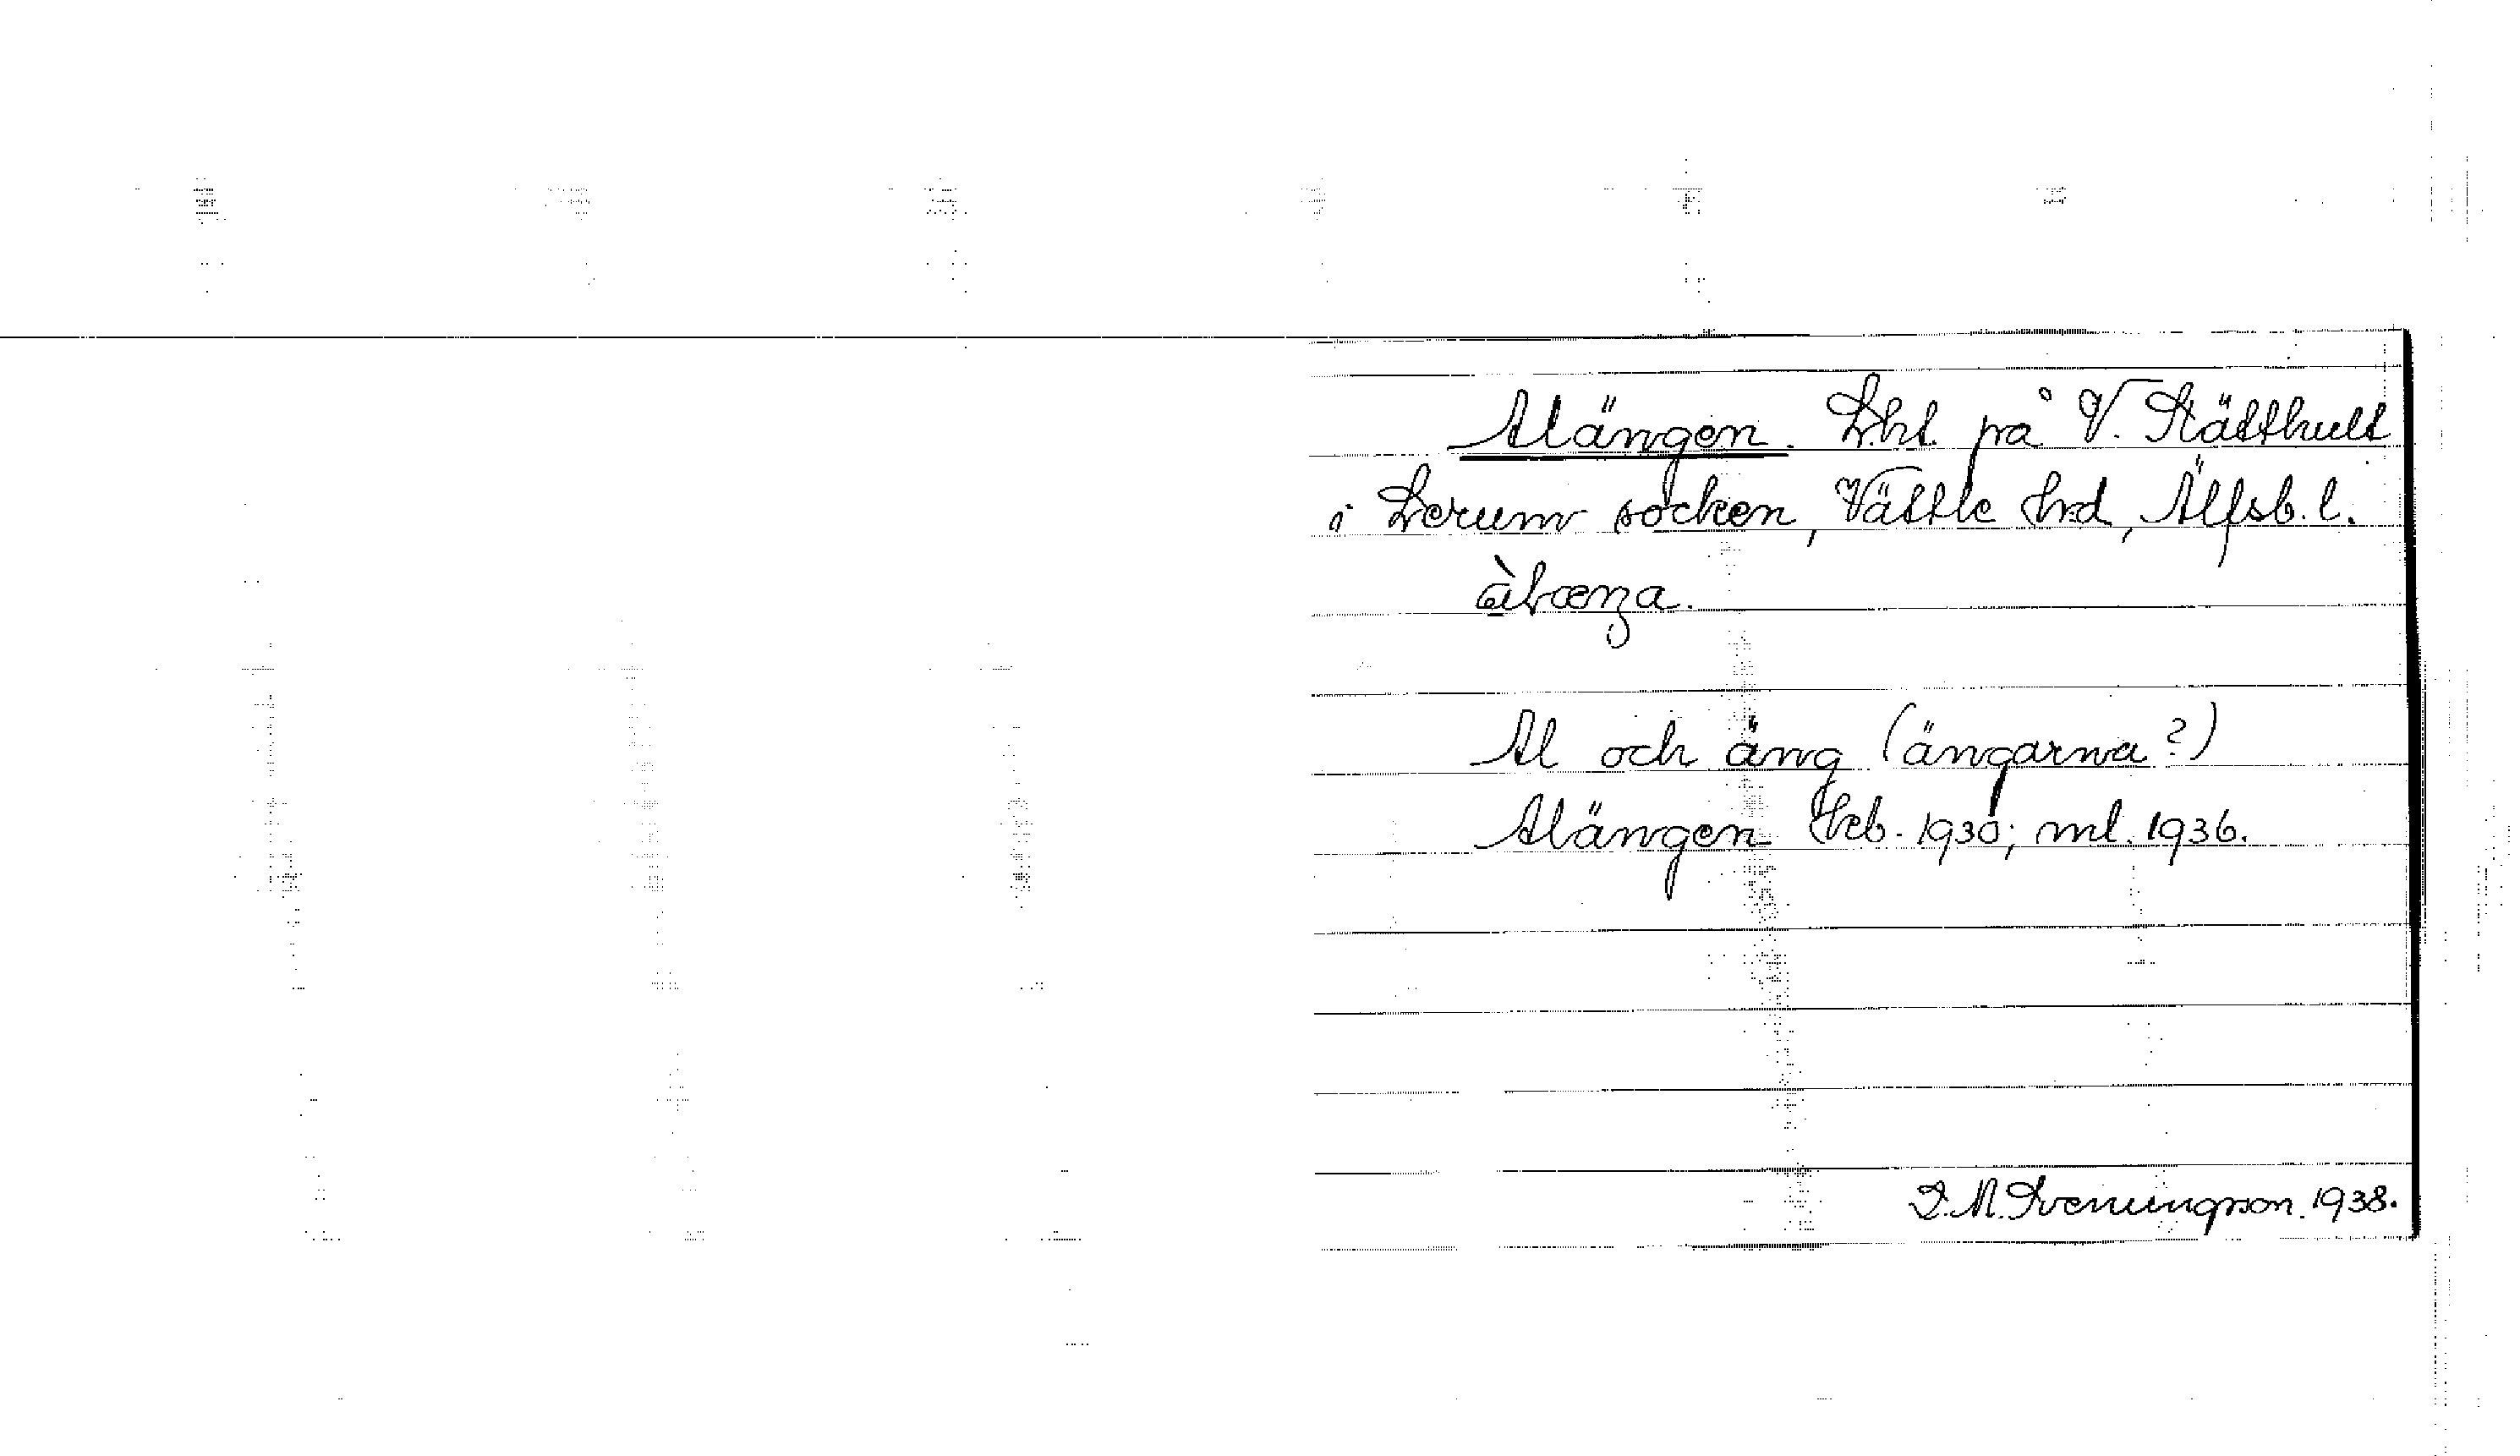 Alängen. Lht. på V. Stätthult
i Lerum socken, Vättle hrd, Älfsb. l.
Al och äng (ängarna?)
Alängen heb. 1930; ml. 1936.
D. A. Svenungsson. 1938.